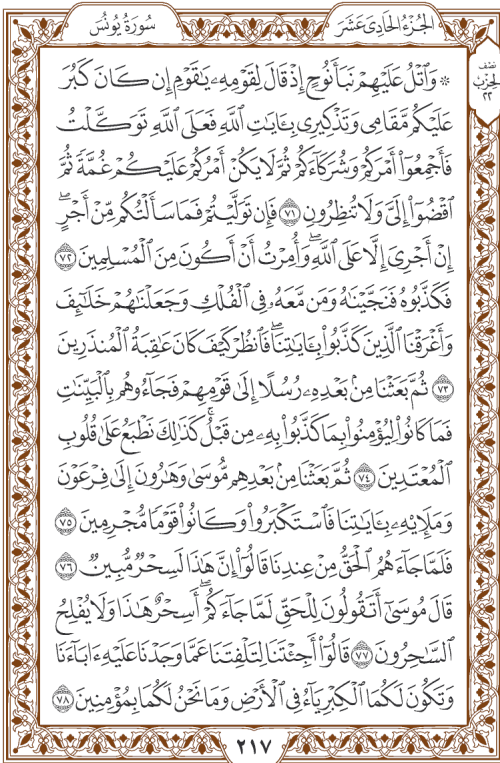 سُورَةُ يُونُسَ
الجُزْءُ الحَادِي عَشَرَ
نصْف
الحِزْبِ
٢٢
۞ وَٱتْلُ عَلَيْهِمْ نَبَأَ نُوحٍ إِذْ قَالَ لِقَوْمِهِۦ يَٰقَوْمِ إِن كَانَ كَبُرَ
عَلَيْكُم مَّقَامِى وَتَذْكِيرِى بِـَٔايَٰتِ ٱللَّهِ فَعَلَى ٱللَّهِ تَوَكَّلْتُ
فَأَجْمِعُوٓا۟ أَمْرَكُمْ وَشُرَكَآءَكُمْ ثُمَّ لَا يَكُنْ أَمْرُكُمْ عَلَيْكُمْ غُمَّةً ثُمَّ
ٱقْضُوٓا۟ إِلَىَّ وَلَا تُنظِرُونِ ٧١ فَإِن تَوَلَّيْتُمْ فَمَا سَأَلْتُكُم مِّنْ أَجْرٍ ۖ
إِنْ أَجْرِىَ إِلَّا عَلَى ٱللَّهِ ۖ وَأُمِرْتُ أَنْ أَكُونَ مِنَ ٱلْمُسْلِمِينَ ٧٢
فَكَذَّبُوهُ فَنَجَّيْنَٰهُ وَمَن مَّعَهُۥ فِى ٱلْفُلْكِ وَجَعَلْنَٰهُمْ خَلَٰٓئِفَ
وَأَغْرَقْنَا ٱلَّذِينَ كَذَّبُوا۟ بِـَٔايَٰتِنَا ۖ فَٱنظُرْ كَيْفَ كَانَ عَٰقِبَةُ ٱلْمُنذَرِينَ
٧٣ ثُمَّ بَعَثْنَا مِنۢ بَعْدِهِۦ رُسُلًا إِلَىٰ قَوْمِهِمْ فَجَآءُوهُم بِٱلْبَيِّنَٰتِ
فَمَا كَانُوا۟ لِيُؤْمِنُوا۟ بِمَا كَذَّبُوا۟ بِهِۦ مِن قَبْلُ ۚ كَذَٰلِكَ نَطْبَعُ عَلَىٰ قُلُوبِ
ٱلْمُعْتَدِينَ ٧٤ ثُمَّ بَعَثْنَا مِنۢ بَعْدِهِم مُّوسَىٰ وَهَٰرُونَ إِلَىٰ فِرْعَوْنَ
وَمَلَإِي۟هِۦ بِـَٔايَٰتِنَا فَٱسْتَكْبَرُوا۟ وَكَانُوا۟ قَوْمًا مُّجْرِمِينَ ٧٥
فَلَمَّا جَآءَهُمُ ٱلْحَقُّ مِنْ عِندِنَا قَالُوٓا۟ إِنَّ هَٰذَا لَسِحْرٌ مُّبِينٌ ٧٦
قَالَ مُوسَىٰٓ أَتَقُولُونَ لِلْحَقِّ لَمَّا جَآءَكُمْ ۖ أَسِحْرٌ هَٰذَا وَلَا يُفْلِحُ
ٱلسَّٰحِرُونَ ٧٧ قَالُوٓا۟ أَجِئْتَنَا لِتَلْفِتَنَا عَمَّا وَجَدْنَا عَلَيْهِ ءَابَآءَنَا
وَتَكُونَ لَكُمَا ٱلْكِبْرِيَآءُ فِى ٱلْأَرْضِ وَمَا نَحْنُ لَكُمَا بِمُؤْمِنِينَ ٧٨
٢١٧